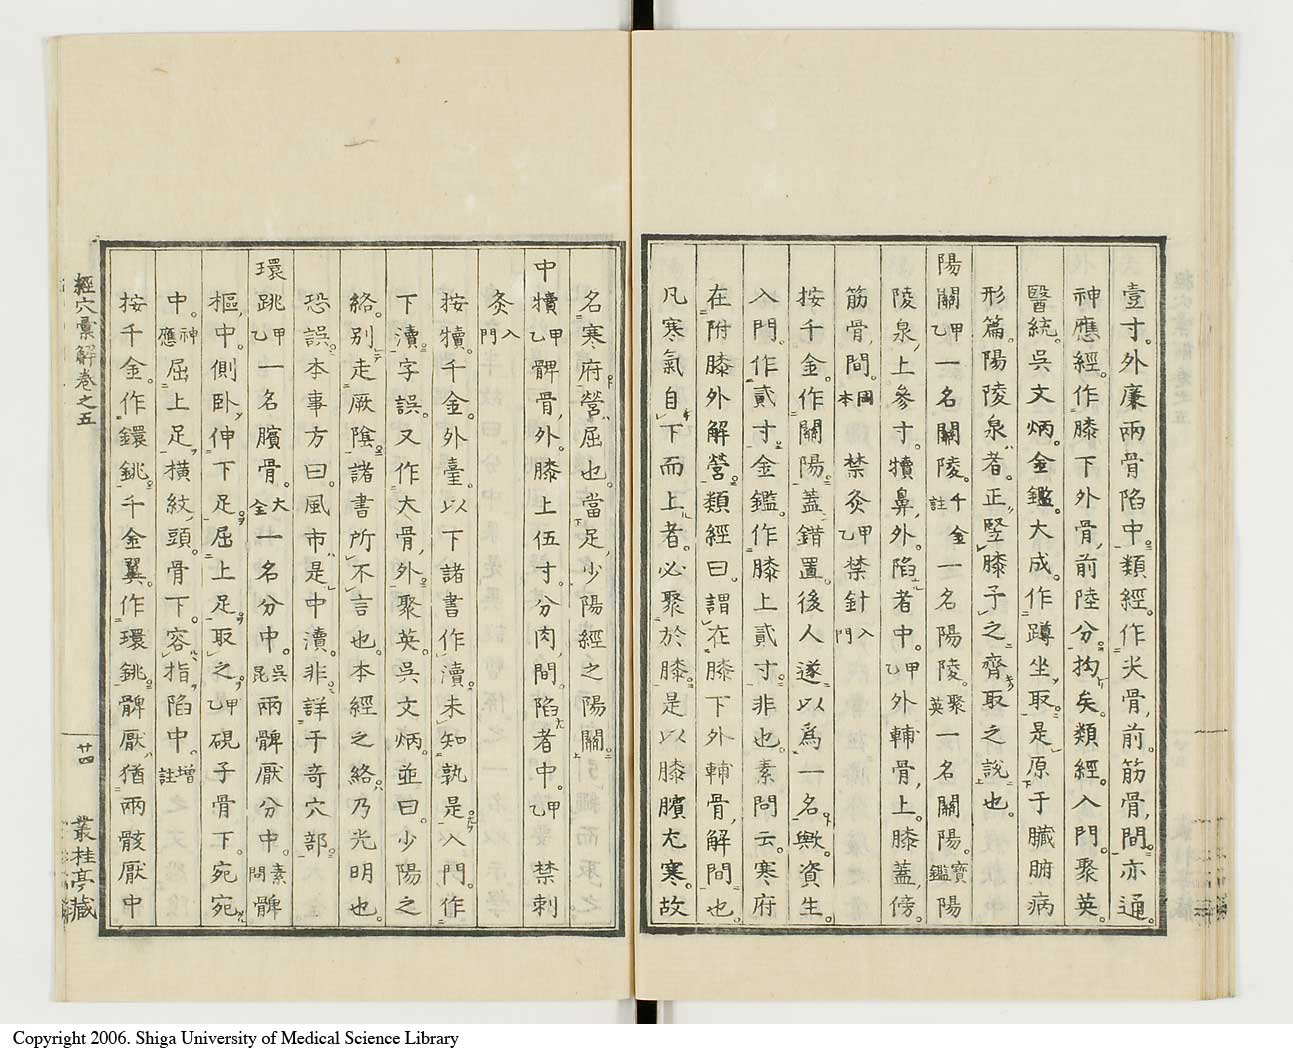 壹寸。外廉兩骨陷中。類經。作尖骨前。筋骨間。亦通。
神應經。作膝下外骨前陸分。拘矣。類經。入門。聚英。
醫統。吳文炳。金鑑。大成。作蹲坐取。是原于臟腑病
形篇。陽陵泉者。正竪膝子之齊取之説也。
陽關甲乙一名關陵。千金註一名陽陵。聚英一名關陽。寶鑑陽
陵泉上參寸。犢鼻外。陷者中。甲乙外輔骨上。膝蓋傍。
筋骨間。岡本禁灸甲乙禁針入門
按千金。作關陽。蓋錯置。後人遂以爲一名歟。資生。
入門。作貳寸。金鑑。作膝上貳寸。非也。素問云。寒府
在附膝外解營。類經曰。謂在膝下外輔骨解間也。
凡寒氣自下而上者。必聚於膝。是以膝臏尤寒。故
名寒府。營屈也。當足少陽經之陽關。
中犢甲乙髀骨外。膝上伍寸。分肉間。陷者中。甲乙禁刺
灸入門
按犢。千金。外臺。以下諸書作瀆。未知孰是。入門。作
下瀆。字誤。又作大骨外。聚英。吳文炳。並曰。少陽之
絡。別走厥陰。諸書所不言也。本經之絡。乃光明也。
恐誤。本事方曰。風市。是中瀆。非。詳于奇穴部。
環跳甲乙一名臏骨。大全一名分中。吳昆兩髀厭分中。素問髀
樞中。側卧伸下足。屈上足取之。甲乙硯子骨下。宛宛
中。神應屈上足。橫紋頭。骨下。容指陷中。增註
按千金。作鐶銚。千金翼。作環銚。髀厭。猶兩骸厭中
經穴彙解卷之五
廿四
叢桂亭藏
Copyright 2006. Shiga University of Medical Science Library